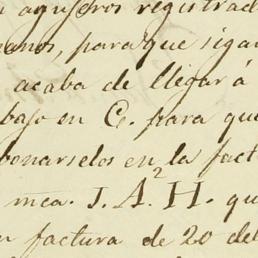 agujeros registrad
manos, para que sigan
acaba de llegar á
bajo en C. para que
bonarselos en la fact
mca. J. A². H. qu
factura de 20 del